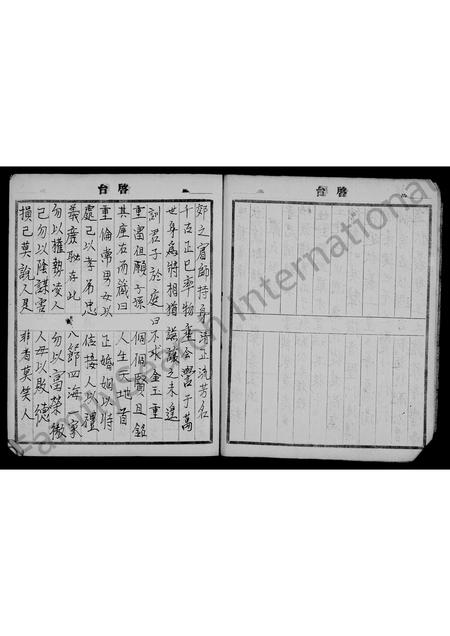 啓台
啓台
郊之賓師持身清正流芳名
千古正己率物重合譽于萬
世身為將相猶謨之未遑
訓君子於庭曰不求金玉重
重富但願子孫個個賢且銘
其座右而藏曰人生天地首
重倫常男女以正婚姻以時
處己以孝弟忠信接人以禮
義廉恥存此八節四海一家
勿以權勢凌人勿以富榮傲
己勿以陰謀害人毋以敗德
損己莫說人是非者莫笑人
FamilySearch International